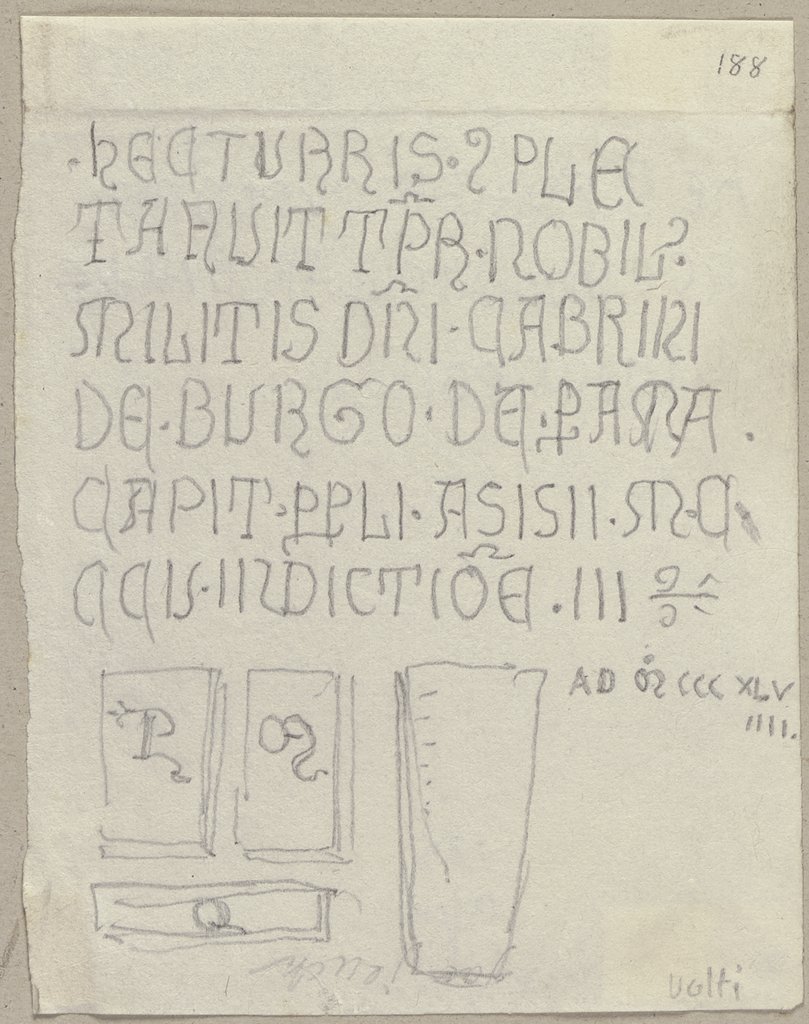 188
·HECTURRIS·Ꝯ PLE
TA FUIT TP̃R·NOBIL?
MILITIS DÑI·GABRINI
DE·BURGO·DE·ꝐARMA.
CAPIT·ꝐPLI·ASISII·M·C
CCIS·INDICTIÕE.III
AD M CCC XLV
IIII.
P
M
Q
volti